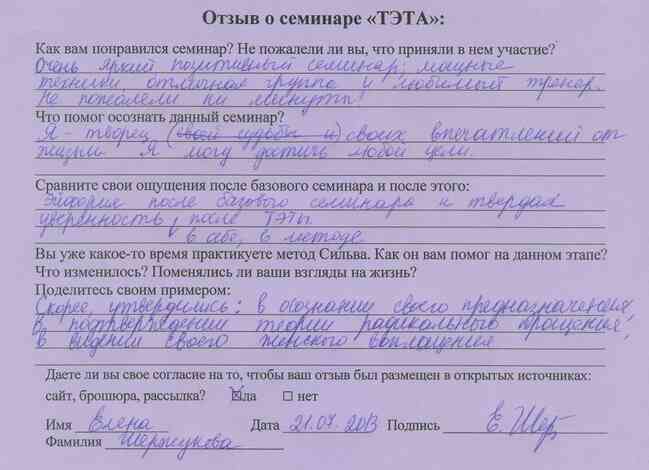 Отзыв о семинаре «ТЭТА»:
Как вам понравился семинар? Не пожалели ли вы, что приняли в нем участие?
Очень яркий позитивный семинар; мощные
техники, отличная группа и любимый тренер.
Не пожалели ни минуты!
Что помог осознать данный семинар?
Я - творец (своей судьбы и) своих впечатлений от
жизни. Я могу достичь любой цели.
Сравните свои ощущения после базового семинара и после этого:
Эйфория после базового семинара и твердая
уверенность после ТЭТЫ
в себе, в методе
Вы уже какое-то время практикуете метод Сильва. Как он вам помог на данном этапе?
Что изменилось? Поменялись ли ваши взгляды на жизнь?
Поделитесь своим примером:
Скорее, утвердились: в осознании своего предназначения,
в подтверждении теории радикального прощения,
в видении своего женского воплощения
Даете ли вы свое согласие на то, чтобы ваш отзыв был размещен в открытых источниках:
сайт, брошюра, рассылка? ☒да ☐ нет
Имя Елена Дата 21.07.2013 Подпись Е. Шер
Фамилия